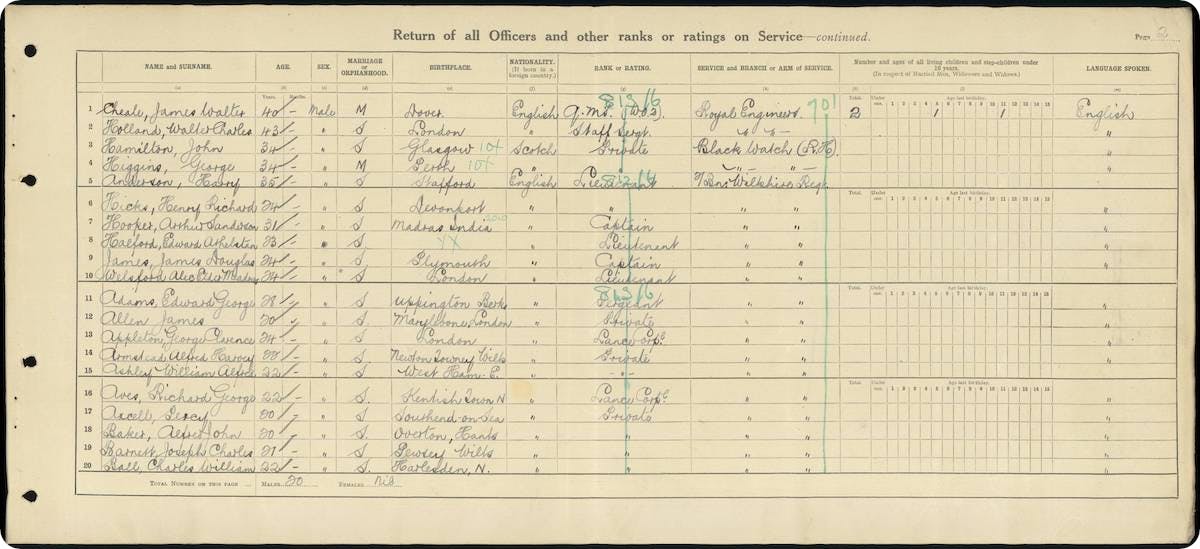 Return of all Officers and other ranks or ratings on Service—continued.
Page 2
NAME and SURNAME. AGE. SEX. MARRIAGE or ORPHANHOOD. BIRTHPLACE. NATIONALITY. (If born in a foreign country.) RANK or RATING. SERVICE and BRANCH or ARM of SERVICE. Number and ages of all living children and step-children under 16 years. (In respect of Married Men, Widowers and Widows.) LANGUAGE SPOKEN.
Years. Months. Total. Under one. 1 2 3 4 5 6 7 8 9 10 11 12 13 14 15 Age last birthday.
1 Cheale, James Walter 40 - Male M Dover English Q.M.S. (W.O.2) Royal Engineers 2 1 1 English
2 Holland, Walter Charles 43 - " S London " Staff Sergt. " " "
3 Hamilton, John 34 - " S Glasgow Scotch Private Black Watch (R.H). "
4 Higgins, George 34 - " M Perth " " " "
5 Anderson, Harry 35 - " S Stafford English Lieutenant Wiltshire Reg. "
Total. Under one. 1 2 3 4 5 6 7 8 9 10 11 12 13 14 15 Age last birthday.
6 Hicks, Henry Richard 24 - " S Devonport " " " " "
7 Hooper, Arthur Sanderson 31 - " S Madras India " Captain " " "
8 Halford, Edward Athelstan 23 - " S " Lieutenant " " "
9 James, James Douglas 24 - " S Plymouth " Captain " " "
10 Welsford, Alec 24 - " S London " Lieutenant " " "
Total. Under one. 1 2 3 4 5 6 7 8 9 10 11 12 13 14 15 Age last birthday.
11 Adams, Edward George 28 - " S Uppington Berks " Sergeant " " "
12 Allen James 20 - " S. Marylebone, London " Private " " "
13 Appleton, George Clarence 24 - " S London " Lance Corpl. " " "
14 Armstead Alfred Harvey 28 - " S. Newton Wilts " Private " " "
15 Ashley William Alfred 22 - " S West Ham. E. " " " " "
Total. Under one. 1 2 3 4 5 6 7 8 9 10 11 12 13 14 15 Age last birthday.
16 Aves, Richard George 22 - " S Kentish Town N " Lance Corpl. " " "
17 Axcell, Percy 20 - " S Southend-on-Sea " Private " " "
18 Baker, Alfred John 20 - " S. Overton, Hants " " " " "
19 Barnett, Joseph Charles 21 - " S. Pewsey Wilts " " " " "
20 Ball, Charles William 22 - " S. Harlesden, N. " " " " "
TOTAL NUMBER ON THIS PAGE MALES 20 FEMALES Nil